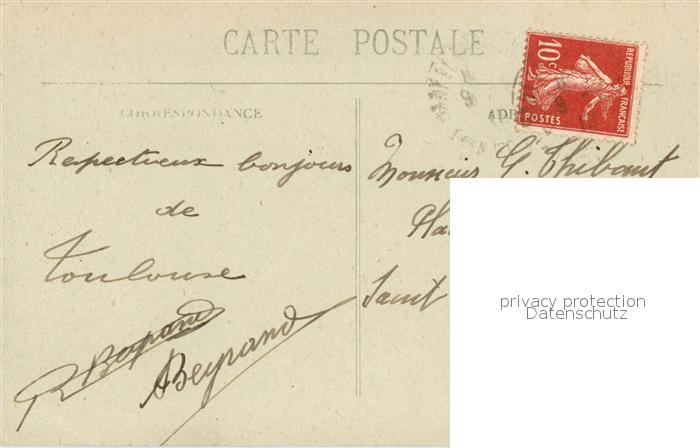 CARTE POSTALE
REPUBLIQUE FRANÇAISE
10c
POSTES
CORRESPONDANCE
ADR
Respectueux bonjours
de
Toulouse
Beyrand
Monsieur G. Thibaut
Pla
Saint
privacy protection
Datenschutz